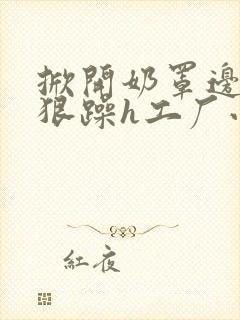 掀開奶罩邊
狠躁h工厂
紅夜